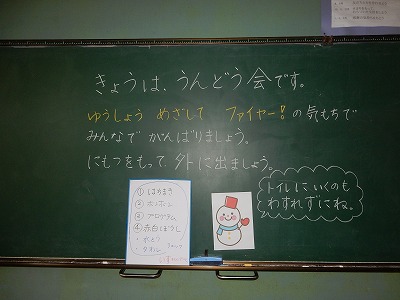 きょうは、うんどう会です。
ゆうしょう めざして ファイヤー！の気もちで
みんなで がんばりましょう。
にもつをもって、外に出ましょう。
トイレにいくのも
わすれずにね。
① はちまき
③ プログラム
④ 赤白ぼうし